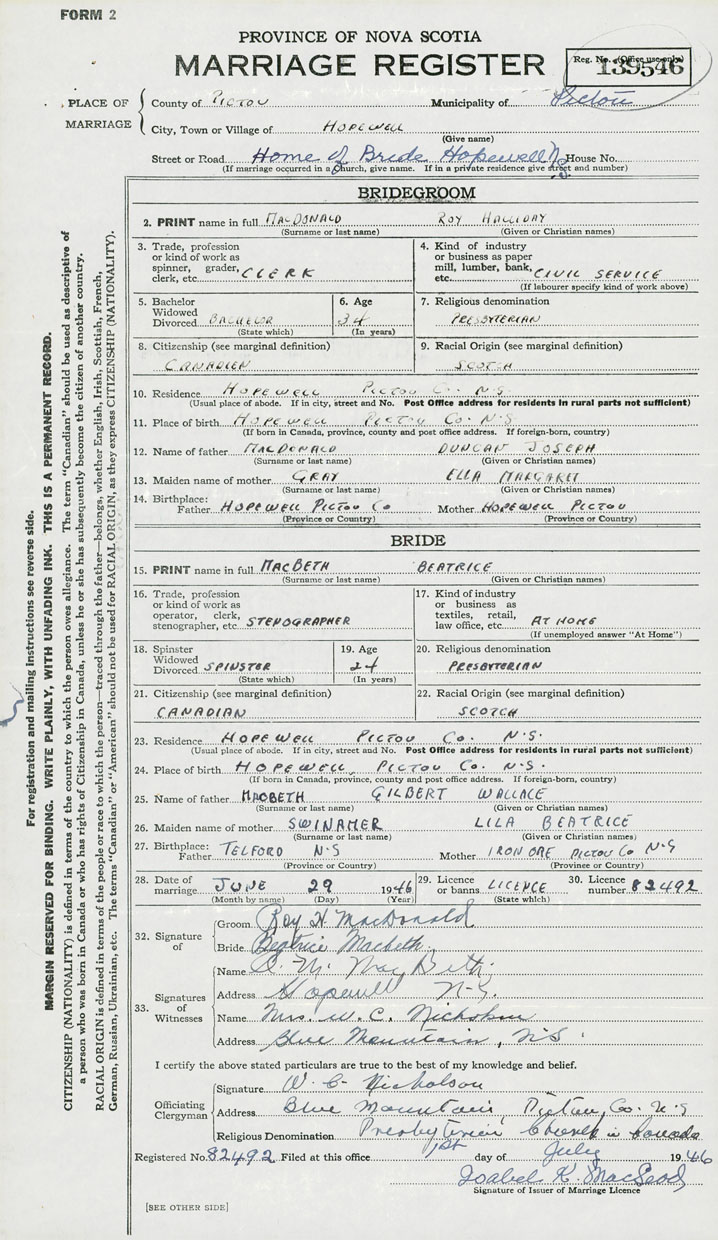 FORM 2
PROVINCE OF NOVA SCOTIA
MARRIAGE REGISTER
Reg. No. (Office use only)
139546
PLACE OF MARRIAGE
County of PICTOU Municipality of Pictou
City, Town or Village of HOPEWELL
(Give name)
Street or Road Home of Bride Hopewell N.S. House No.
(If marriage occurred in a Church, give name. If in a private residence give street and number)
BRIDEGROOM
2. PRINT name in full MACDONALD ROY HALLIDAY
(Surname or last name) (Given or Christian names)
3. Trade, profession
or kind of work as
spinner, grader,
clerk, etc. CLERK
4. Kind of industry
or business as paper
mill, lumber, bank,
etc. CIVIL SERVICE
(If labourer specify kind of work above)
5. Bachelor
Widowed
Divorced BACHELOR
(State which)
6. Age
34
(In years)
7. Religious denomination
PRESBYTERIAN
8. Citizenship (see marginal definition)
CANADIEN
9. Racial Origin (see marginal definition)
SCOTCH
10. Residence HOPEWELL PICTOU CO N.S
(Usual place of abode. If in city, street and No. Post Office address for residents in rural parts not sufficient)
11. Place of birth HOPEWELL PICTOU CO. N.S
(If born in Canada, province, county and post office address. If foreign-born, country)
12. Name of father MACDONALD DUNCAN JOSEPH
(Surname or last name) (Given or Christian names)
13. Maiden name of mother GRAY ELLA MARGARET
(Surname or last name) (Given or Christian names)
14. Birthplace:
Father HOPEWELL PICTOU CO Mother HOPEWELL PICTOU
(Province or Country) (Province or Country)
BRIDE
15. PRINT name in full MACBETH BEATRICE
(Surname or last name) (Given or Christian names)
16. Trade, profession
or kind of work as
operator, clerk,
stenographer, etc. STENOGRAPHER
17. Kind of industry
or business as
textiles, retail,
law office, etc. AT HOME
(If unemployed answer "At Home")
18. Spinster
Widowed
Divorced SPINSTER
(State which)
19. Age
24
(In years)
20. Religious denomination
PRESBYTERIAN
21. Citizenship (see marginal definition)
CANADIAN
22. Racial Origin (see marginal definition)
SCOTCH
23. Residence HOPEWELL PICTOU CO. N.S.
(Usual place of abode. If in city, street and No. Post Office address for residents in rural parts not sufficient)
24. Place of birth HOPEWELL, PICTOU CO. N.S.
(If born in Canada, province, county and post office address. If foreign-born, country)
25. Name of father MACBETH GILBERT WALLACE
(Surname or last name) (Given or Christian names)
26. Maiden name of mother SWINAMER LILA BEATRICE
(Surname or last name) (Given or Christian names)
27. Birthplace:
Father TELFORD N.S Mother IRON ORE PICTOU CO N.S
(Province or Country) (Province or Country)
28. Date of
marriage JUNE 29 1946
(Month by name) (Day) (Year)
29. Licence
or banns LICENCE
(State which)
30. Licence
number 82492
32. Signature of
Groom Roy H MacDonald
Bride Beatrice Macbeth
33. Signatures of Witnesses
Name M. MacBeth
Address Hopewell N.S.
Name Mrs. W. C. Nicholson
Address Blue Mountain, N.S.
I certify the above stated particulars are true to the best of my knowledge and belief.
Officiating Clergyman
Signature W. C. Nicholson
Address Blue Mountain, Pictou, Co. N.S
Religious Denomination Presbyterian Church in Canada
Registered No. 82492 Filed at this office 1st day of July 1946
Isabel K. MacLeod
Signature of Issuer of Marriage Licence
[SEE OTHER SIDE]
For registration and mailing instructions see reverse side.
MARGIN RESERVED FOR BINDING. WRITE PLAINLY, WITH UNFADING INK. THIS IS A PERMANENT RECORD.
CITIZENSHIP (NATIONALITY) is defined in terms of the country to which the person owes allegiance. The term "Canadian" should be used as descriptive of
a person who was born in Canada or who has rights of Citizenship in Canada, unless he or she has subsequently become the citizen of another country.
RACIAL ORIGIN is defined in terms of the people or race to which the person—traced through the father—belongs, whether English, Irish, Scottish, French,
German, Russian, Ukrainian, etc. The terms "Canadian" or "American" should not be used for RACIAL ORIGIN, as they express CITIZENSHIP (NATIONALITY).